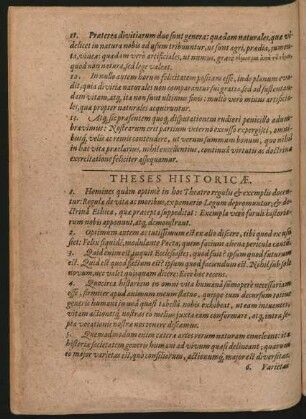 11. Præterea divitiarum duo sunt genera: quædam naturales, quæ vi-
delicet in natura nobis ad usum tribuuntur, ut sunt agri, prædia, jumen-
ta, vivæ: quædam verò artificiales, ut numus, 
quod non natura, sed lege valeat.
12. In nullo autem horum felicitatem positam esse, inde planum eva-
dit, quia divitiæ naturales non comparantur sui gratia, sed ad sustentan-
dam vitam, atq; ita non sunt ultimus finis: multò verò minus artificia-
les, quæ propter naturales acquiruntur.
13. Atq; sic præsentem quoq; disputationem rudiori penicillo adum-
bravimus: Nostrarum erit partium veternô excusso expergisci, omnibusq;
velis ac remis contendere, ut verum summum bonum, quo nihil
in hac vita præclarius, nihil excellentius, continuâ virtutis ac doctrinæ
exercitatione feliciter assequamur.
THESES HISTORICÆ.
1. Homines quàm optimè in hoc Theatro regulis & exemplis docen-
tur: Regulæ de vita ac moribus, ex pomario Legum depromuntur, & do-
ctrina Ethica, quæ præcepta suppeditat: Exempla verò forùs historia-
rum nobis apponunt, atq; demonstrant.
2. Optimum autem ac tutissimum est ex alio discere, tibi quod ex usu
siet: Felix siquidè, modulante Poëta, quem faciunt aliena pericula cautum.
3. Quid enim est, inquit Ecclesiastes, quod fuit? ipsum quod futurum
est. Quid est quod factum est? ipsum quod faciendum est. Nihil sub sole
novum, nec valet quisquam dicere: Ecce hoc recens.
4. Quocirca historiam in omni vita humana summopere necessariam
esse, firmiter apud animum meum statuo, quippe cum 
generis humani in unâ quasi tabellâ nobis exhibeat, ut eam intuentes
vitam actionesq; nostras in melius juxta eam conformare, atq; intra se-
pta vocationis nostræ nos tenere discamus.
5. Quemadmodum enim cætera artes rerum naturam emetiens: ita
historia societatem generis humani ad vivum quasi delineant, quarum
eo major varietas est, quò consiliorum, actionumq; major est diversitas.
6. Varietas